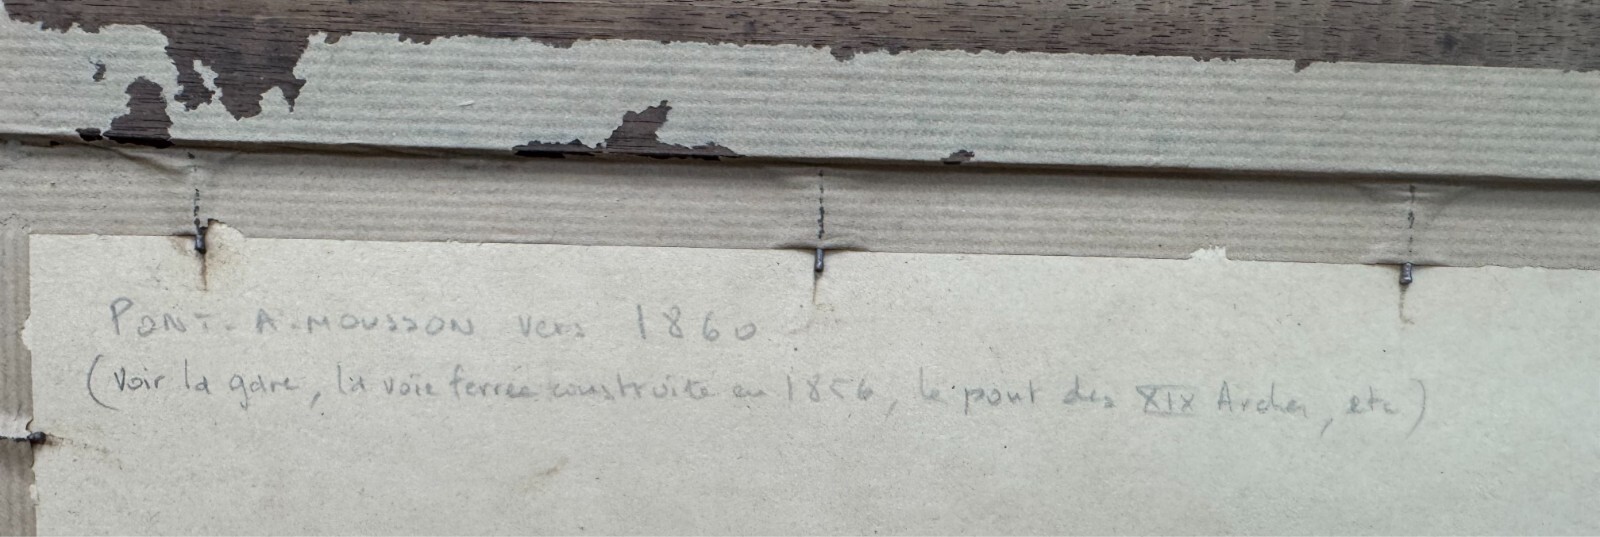 PONT-A-MOUSSON vers 1860
(voir la gare, la voie ferrée construite en 1856, le pont des XIX Arches, etc)